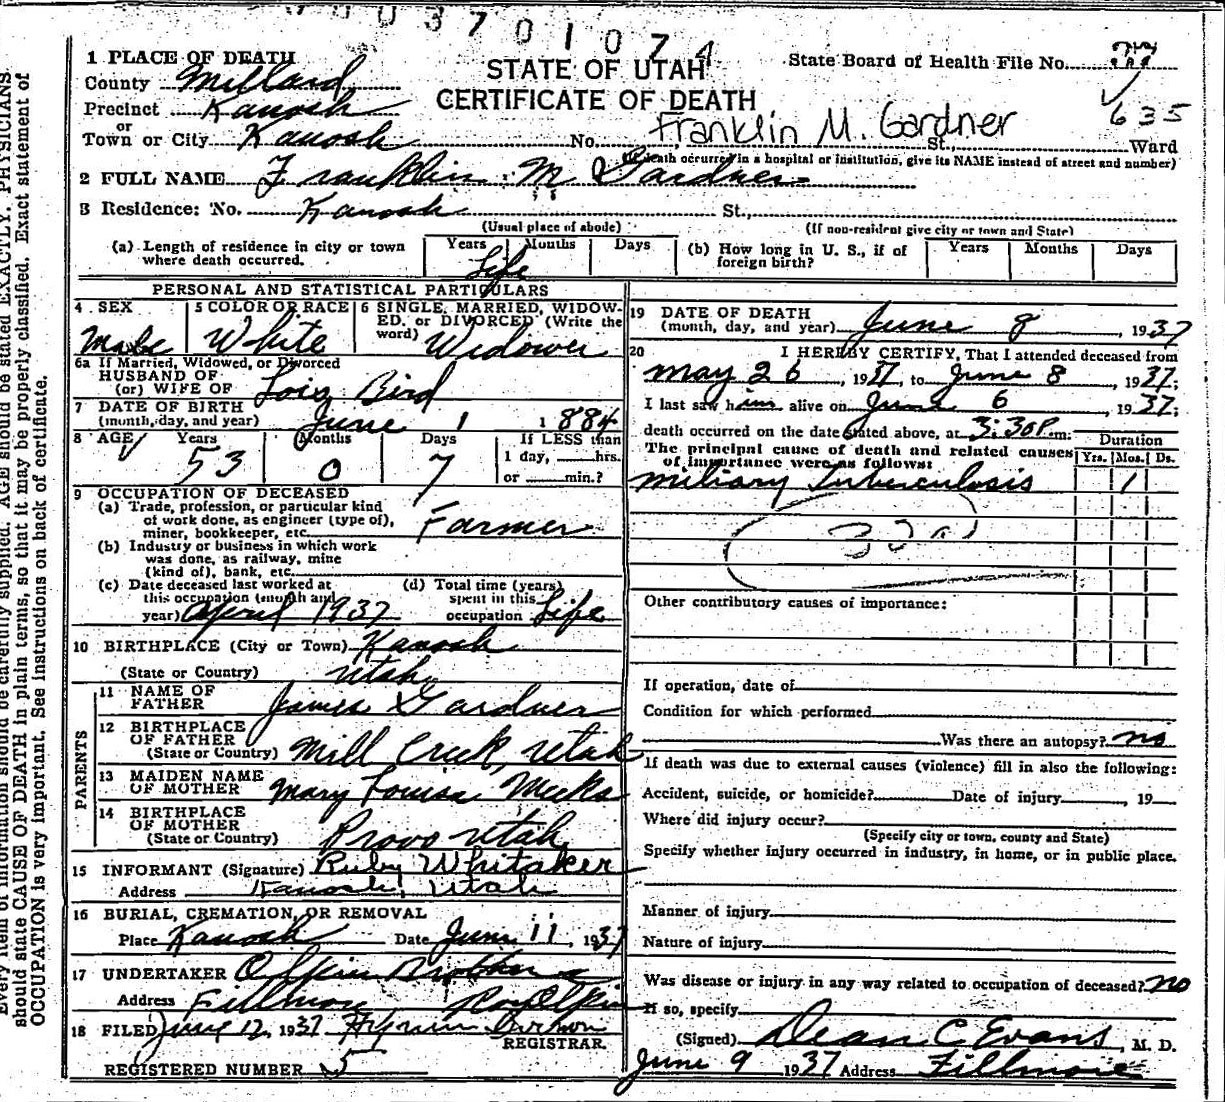 003701074
1 PLACE OF DEATH
STATE OF UTAH
State Board of Health File No.
County Millard
CERTIFICATE OF DEATH
635
Precinct Kanosh
Franklin M. Gardner
or
Town or City Kanosh No. St., Ward
(If death occurred in a hospital or institution, give its NAME instead of street and number)
2 FULL NAME Franklin M Gardner
3 Residence: No. Kanosh St.,
(Usual place of abode) (If non-resident give city or town and State)
(a) Length of residence in city or town where death occurred. Years Months Days Life
(b) How long in U. S., if of foreign birth? Years Months Days
PERSONAL AND STATISTICAL PARTICULARS
4 SEX Male
5 COLOR OR RACE White
6 SINGLE, MARRIED, WIDOWED, or DIVORCED (Write the word) Widower
6a If Married, Widowed, or Divorced
HUSBAND OF
(or) WIFE OF Lois Bird
7 DATE OF BIRTH
(month, day, and year) June 1 1884
8 AGE Years Months Days If LESS than
53 0 7 1 day, hrs.
or min.?
9 OCCUPATION OF DECEASED
(a) Trade, profession, or particular kind
of work done, as engineer (type of),
miner, bookkeeper, etc. Farmer
(b) Industry or business in which work
was done, as railway, mine
(kind of), bank, etc.
(c) Date deceased last worked at
this occupation (month and
year) April 1937
(d) Total time (years)
spent in this
occupation Life
10 BIRTHPLACE (City or Town) Kanosh
(State or Country) Utah
PARENTS
11 NAME OF
FATHER James Gardner
12 BIRTHPLACE
OF FATHER
(State or Country) Mill Creek, Utah
13 MAIDEN NAME
OF MOTHER Mary Louisa Meeks
14 BIRTHPLACE
OF MOTHER
(State or Country) Provo Utah
15 INFORMANT (Signature) Ruby Whitaker
Address Kanosh, Utah
16 BURIAL, CREMATION, OR REMOVAL
Place Kanosh Date June 11, 1937
17 UNDERTAKER Olpin Brothers
Address Fillmore Roy Olpin
18 FILED June 12, 1937
REGISTRAR
REGISTERED NUMBER 5
19 DATE OF DEATH
(month, day, and year) June 8, 1937
20 I HEREBY CERTIFY, That I attended deceased from
May 26, 1937, to June 8, 1937;
I last saw him alive on June 6, 1937;
death occurred on the date stated above, at 3:30P.m.
The principal cause of death and related causes
of importance were as follows:
Duration
Yrs. Mos. Ds.
Miliary Tuberculosis 1
Other contributory causes of importance:
If operation, date of
Condition for which performed
Was there an autopsy? no
If death was due to external causes (violence) fill in also the following:
Accident, suicide, or homicide? Date of injury , 19
Where did injury occur?
(Specify city or town, county and State)
Specify whether injury occurred in industry, in home, or in public place.
Manner of injury
Nature of injury
Was disease or injury in any way related to occupation of deceased? no
If so, specify
(Signed) Dean C Evans, M. D.
June 9 1937 Address Fillmore
Every item of information should be carefully supplied. AGE should be stated EXACTLY. PHYSICIANS
should state CAUSE OF DEATH in plain terms, so that it may be properly classified. Exact statement of
OCCUPATION is very important. See instructions on back of certificate.